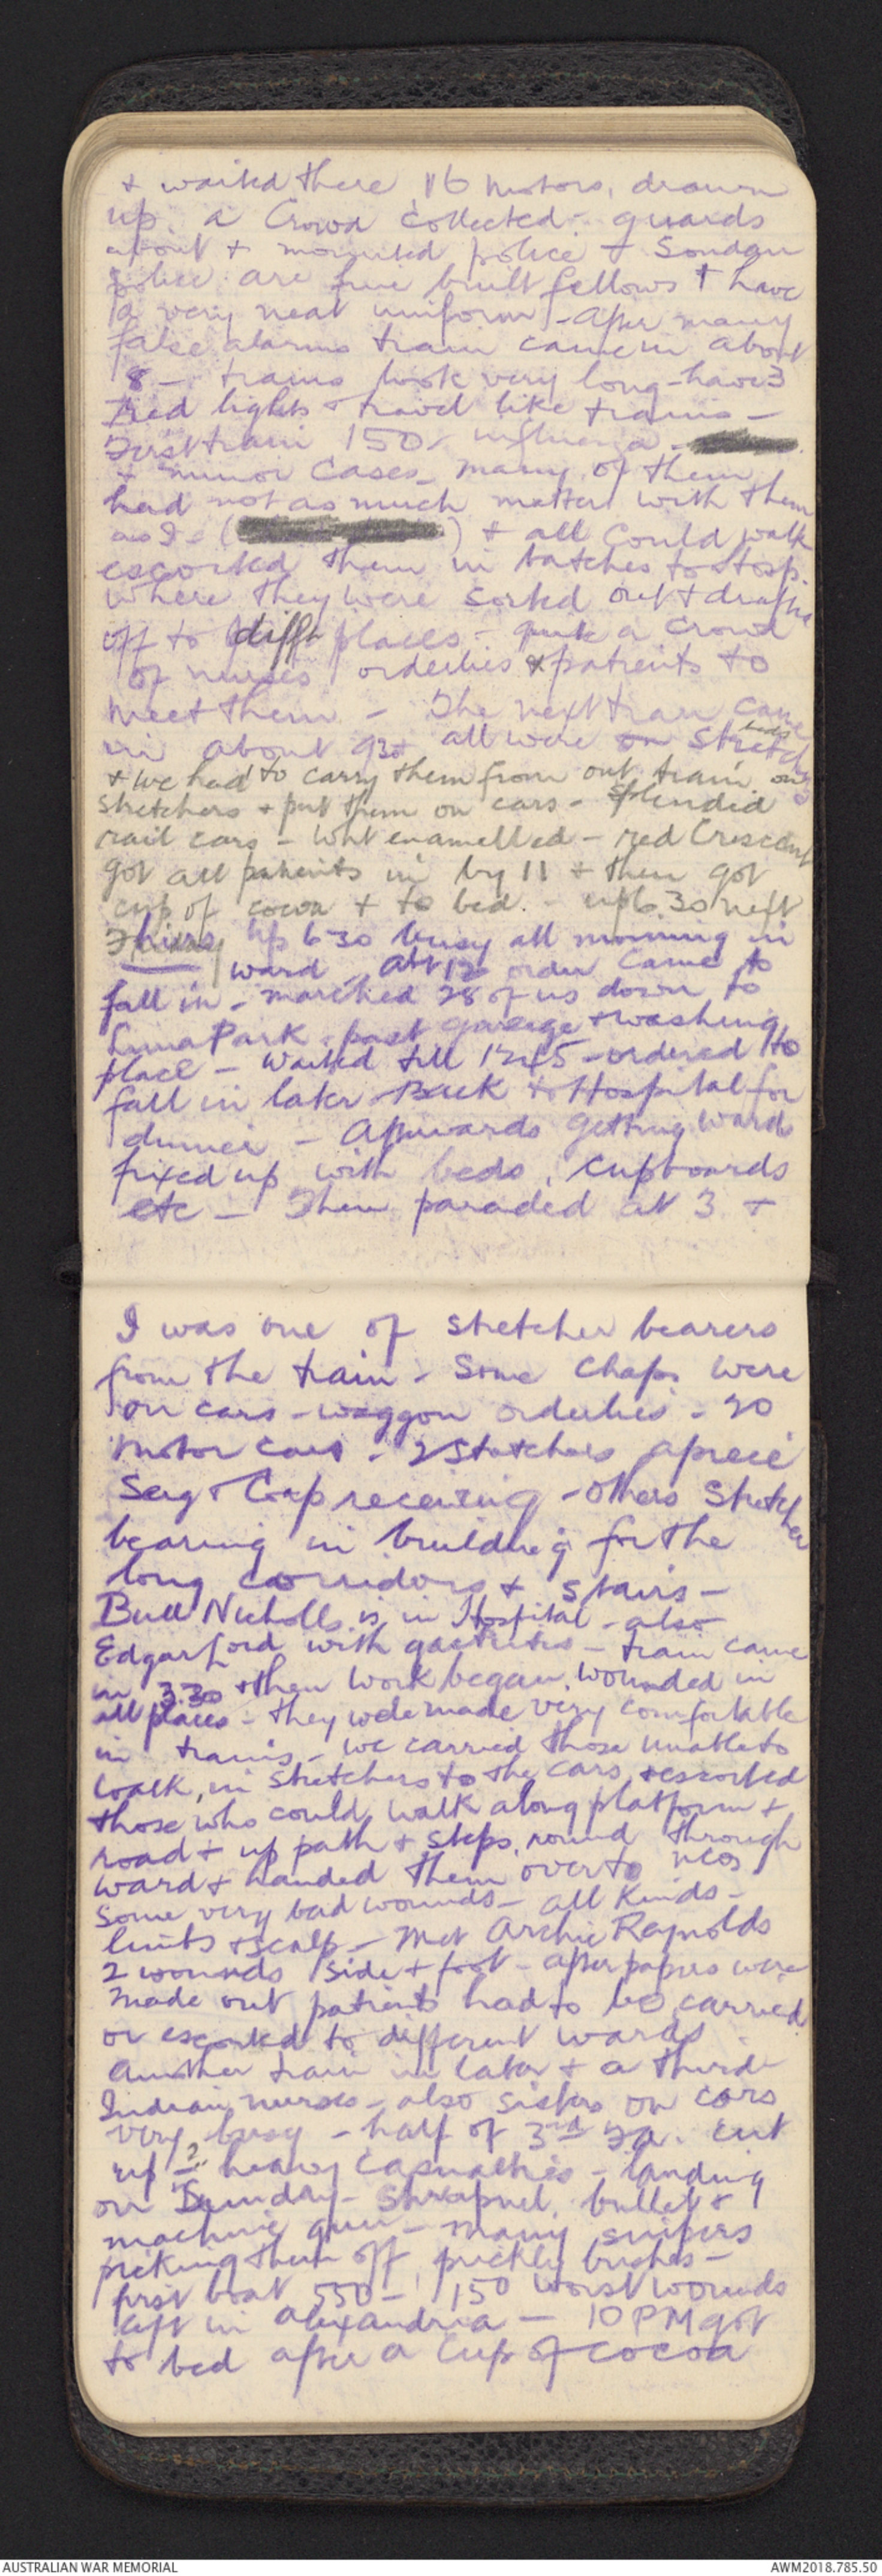 & waited there 16 motors, drawn
up. a Crowd collected - guards
about & mounted police - Soudan
police are fine built fellows & have
a very neat uniform - after many
false alarms train came in about
8 - trains look very long - have 3
red lights & travel like trams -
First train 150 - influenza -
& minor Cases - many of them
had not as much matter with them
as I - ( ) & all could walk
escorted them in batches to Hosp.
where they were sorted out & drafted
off to difft places - quite a crowd
of nurses orderlies & patients to
meet them - The next train came
in about 930 all were on stretch
beds
& we had to carry them from out train on
stretchers & put them on cars - splendid
rail cars - wht enamelled - red Crescent
got all patients in by 11 & then got
cup of cocoa & to bed. - up 6.30 next
Thurs up 6-30 busy all morning in
ward - at 12 order came to
fall in - marched 28 of us down to
Luna Park - past garage & washing
place - waited till 1245 - ordered to
fall in later - Back to Hospital for
dinner - Afterwards getting ward
fixed up with beds, cupboards
etc - Then paraded at 3 &
I was one of stretcher bearers
from the train - Some Chaps were
on cars - waggon orderlies - 20
motor cars - 2 stretchers apiece
Serg & Cap receiving - others Stretcher
bearing in building for the
long corridors & stairs -
Bull Nicholls is in Hospital - also
Edgar Ford with gastritis - train came
in 3.30 & then work began. wounded in
all places - they were made very comfortable
in trains - we carried those unable to
walk, in stretchers to the cars & escorted
those who could walk along platform &
road & up path & steps, round through
ward & handed them over to
Some very bad wounds - all kinds -
limbs & scalp - Met Archie Reynolds
2 wounds side & foot - after papers were
made out patients had to be carried
or escorted to different wards
Another train in later & a third
Indian nurses - also sisters on cars
very busy - half of 3rd cut
up - ? heavy casualties - landing
on Sunday - shrapnel, bullet &
machine gun - many snipers
picking them off prickly bushes -
first boat 550 - 150 worst wounds
left in Alexandria - 10 PM got
to bed after a Cup of cocoa
AUSTRALIAN WAR MEMORIAL
AWM2018.785.50